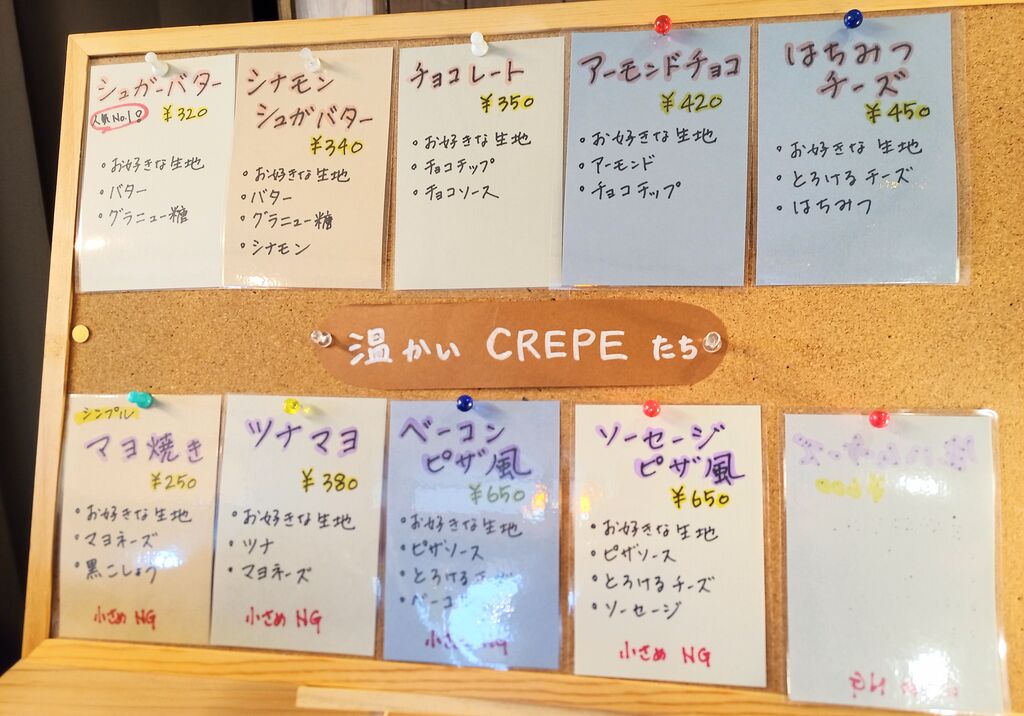 シュガーバター
人気No.1!
¥320
・お好きな生地
・バター
・グラニュー糖
シナモン
シュガバター
¥340
・お好きな生地
・バター
・グラニュー糖
・シナモン
チョコレート
¥350
・お好きな生地
・チョコチップ
・チョコソース
アーモンドチョコ
¥420
・お好きな生地
・アーモンド
・チョコチップ
はちみつ
チーズ
¥450
・お好きな生地
・とろけるチーズ
・はちみつ
温かい CREPE たち
シンプル
マヨ焼き
¥250
・お好きな生地
・マヨネーズ
・黒こしょう
小さめ NG
ツナマヨ
¥380
・お好きな生地
・ツナ
・マヨネーズ
小さめ NG
ベーコン
ピザ風
¥650
・お好きな生地
・ピザソース
・とろけるチーズ
・ベーコン
小さめ NG
ソーセージ
ピザ風
¥650
・お好きな生地
・ピザソース
・とろけるチーズ
・ソーセージ
小さめ NG